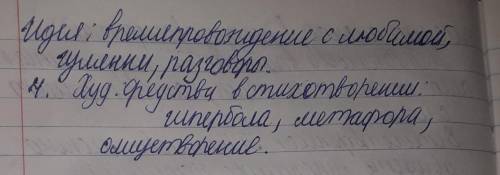 Идея: времяпровождение с любимой,
гулянки, разговоры.
4. Худ. средства в стихотворении:
гипербола, метафора,
олицетворение.